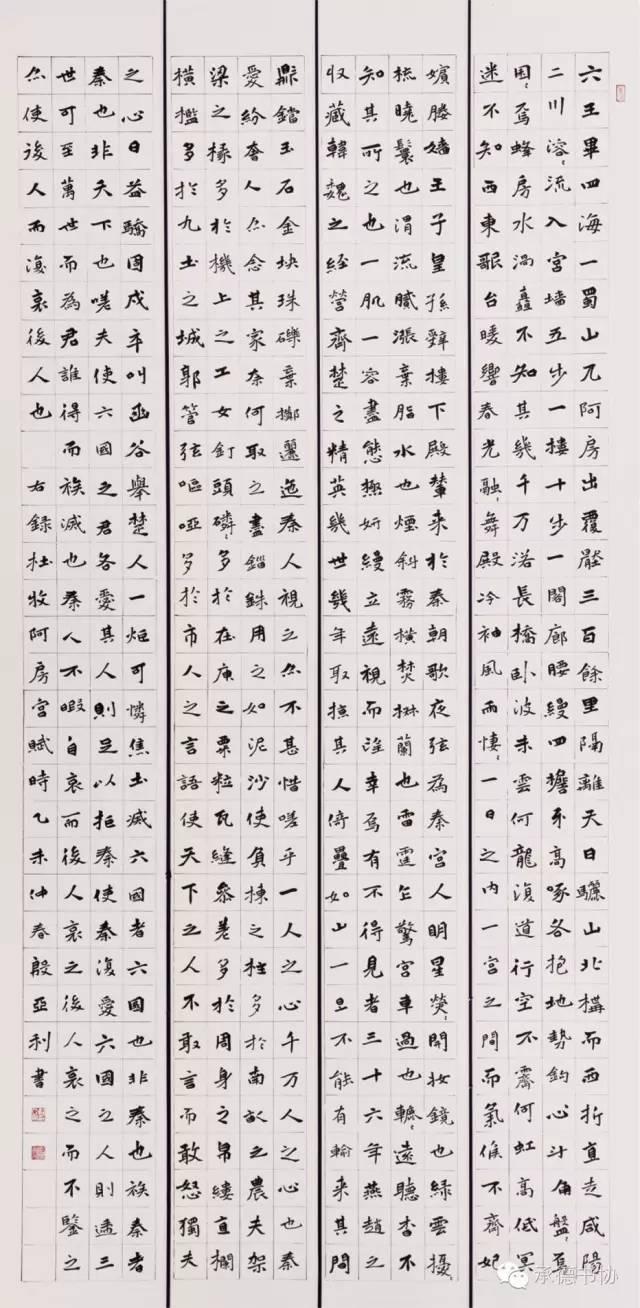 六王畢四海一蜀山兀阿房出覆壓三百餘里隔離天日驪山北構而西折直走咸陽
二川溶〻流入宮墙五步一樓十步一閣廊腰縵回檐牙高啄各抱地勢鈎心斗角盤〻焉
囷〻焉蜂房水渦矗不知其幾千万落長橋卧波未雲何龍復道行空不霽何虹高低冥
迷不知西東歌台暖響春光融〻舞殿冷袖風雨悽〻一日之内一宮之間而氣候不齊妃
嬪媵嬙王子皇孫辭樓下殿輦來於秦朝歌夜弦為秦宮人明星熒〻開妝鏡也緑雲擾
梳曉鬟也渭流膩漲棄脂水也煙斜霧橫焚椒蘭也雷霆乍驚宮車過也轆〻遠聽杳不
知其所之也一肌一容盡態極妍縵立遠視而望幸焉有不得見者三十六年燕趙之
收藏韓魏之經營齊楚之精英幾世幾年取掠其人倚疊如山一旦不能有輸來其間
鼎鐺玉石金塊珠礫棄擲邐迤秦人視之亦不甚惜嗟乎一人之心千万人之心也秦
愛紛奢人亦念其家奈何取之盡錙銖用之如泥沙使負棟之柱多於南畝之農夫架
梁之椽多於機上之工女釘頭磷〻多於在庾之粟粒瓦縫參差多於周身之帛縷直欄
橫檻多於九土之城郭管弦嘔啞多於市人之言語使天下之人不敢言而敢怒獨夫
之心日益驕固戍卒叫函谷舉楚人一炬可憐焦土滅六國者六國也非秦也族秦者
秦也非天下也嗟夫使六國之君各愛其人則足以拒秦使秦復愛六國之人則遞三
世可至萬世而為君誰得而族滅也秦人不暇自哀而後人哀之後人哀之而不鑒之
亦使後人而復哀後人也 右録杜牧阿房宮賦時乙未仲春殷亞利書
承德书协